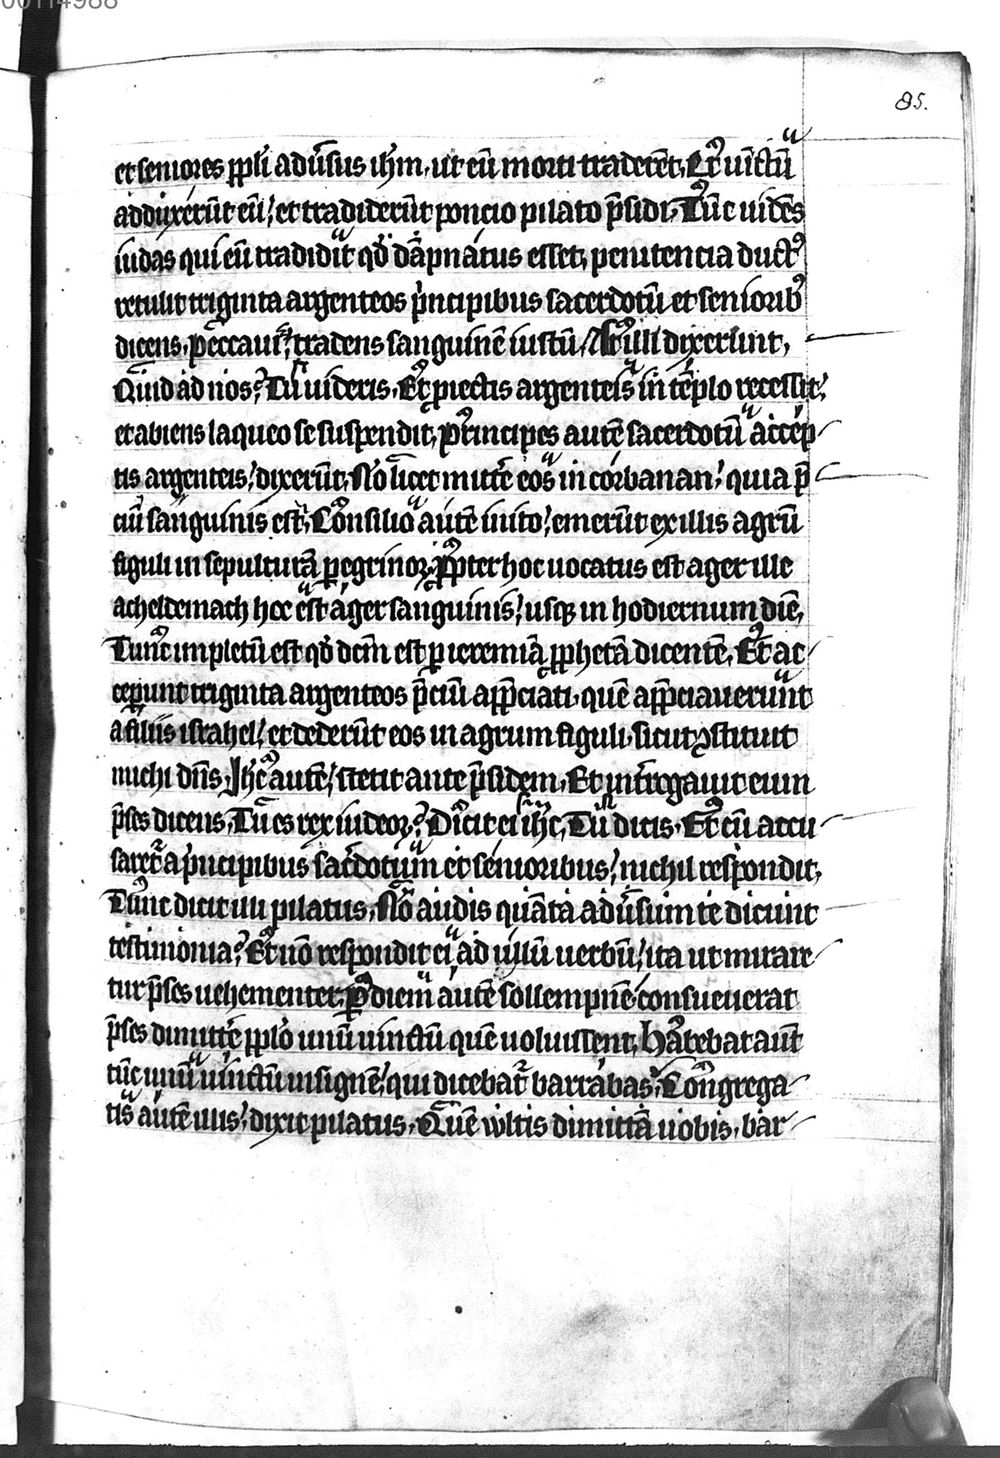 00114988
85.
et seniores ppl̄i adūsus ih̄m, ut eū morti traderēt, Et uīctū
adduxerūt eū, et tradiderūt poncio pilato p̄sidi, Tūc uidēs
iudas qui eū tradidit qd̄ dāpnatus esset, penitencia duct⁹
retulit triginta argenteos p̄ncipibus sacerdotū et seniorib⁹
dicens, peccaui, tradens sanguinē iustū, At illi dixerunt,
Quid ad nos? Tu uideris, Et piectis argenteis in tēplo recessit,
et abiens laqueo se suspendit, principes autē sacerdotū accep
tis argenteis, dixerūt, No licet mittē eos in corbanan, quia p̄
ciū sanguinis est, Consilio autē inito, emerūt ex illis agrū
figuli in sepulturā peregrinoꝝ, ꝓpter hoc uocatus est ager ille
acheldemach hoc est ager sanguinis, usqꝫ in hodiernum diē,
Tunc impletū est qd̄ dcm̄ est p ieremiā ꝓphetā dicentē, Et ac
ceperunt triginta argenteos p̄ciū app̄ciati, quē app̄ciauerunt
a filiis israhel, et dederūt eos in agrum figuli, sicut ꝯstituit
michi dn̄s, Ih̄c autē, stetit ante p̄sidem, Et int̄rogauit eum
p̄ses dicens, Tu es rex iudeoꝝ? Dicit ei ih̄c, Tu dicis, Et cū accu
saret᷑ a p̄ncipibus sac̄dotum et senioribus, nichil respondit,
Tunc dicit illi pilatus, Nō audis quāta adūsum te dicunt
testimonia? Et nō respondit ei ad ullū uerbū, ita ut mirare
tur p̄ses uehementer, p diem autē sollempnē consueuerat
p̄ses dimittē pplō unū uinctū quē uoluissent, Habebat aut̄
tūc unū uinctū insignē, qui dicebat᷑ barrabas, Congrega
tis autē illis, dixit pilatus, Quē uultis dimittā uobis, bar